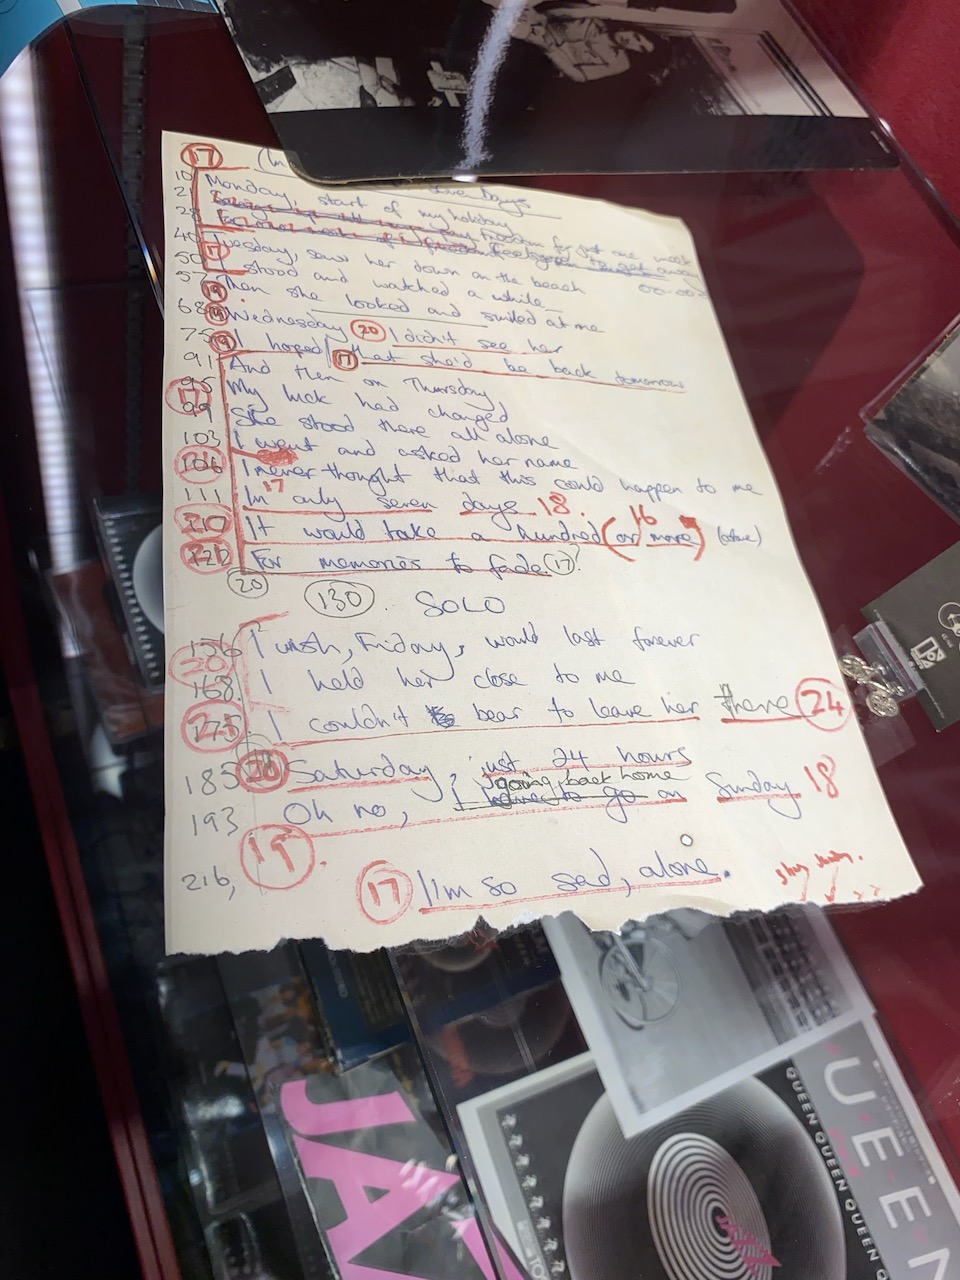 17 (In
Seven Days
10 Monday, start of my holiday
21 Freedom for just one week
28 Feels good to get away
00-00-
40 Tuesday, saw her down on the beach
50 17 I stood and watched a while
57 19 Then she looked and smiled at me
68 18 Wednesday 20 I didn't see her
75 19 I hoped 17 that she'd be back tomorrow
91 And then on Thursday
95 My luck had changed
17
99 She stood there all alone
103 I went and asked her name
106 I never thought that this could happen to me
111 In 17 only seven days 18.
210 It would take a hundred (or more) 16
220 For memories to fade. 17?
20
130 SOLO
156 I wish, Friday, would last forever
20
168. I held her close to me
175 I couldn't bear to leave her there 24
185 20 Saturday, just 24 hours
going back home
193 Oh no, to go on Sunday 18
19.
216, 17 I'm so sad, alone.
JA
QUEEN QUEEN QUEEN Q
UEEN